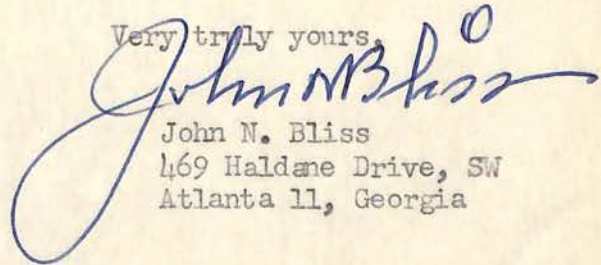 Very truly yours,
John N Bliss
John N. Bliss
469 Haldane Drive, SW
Atlanta 11, Georgia